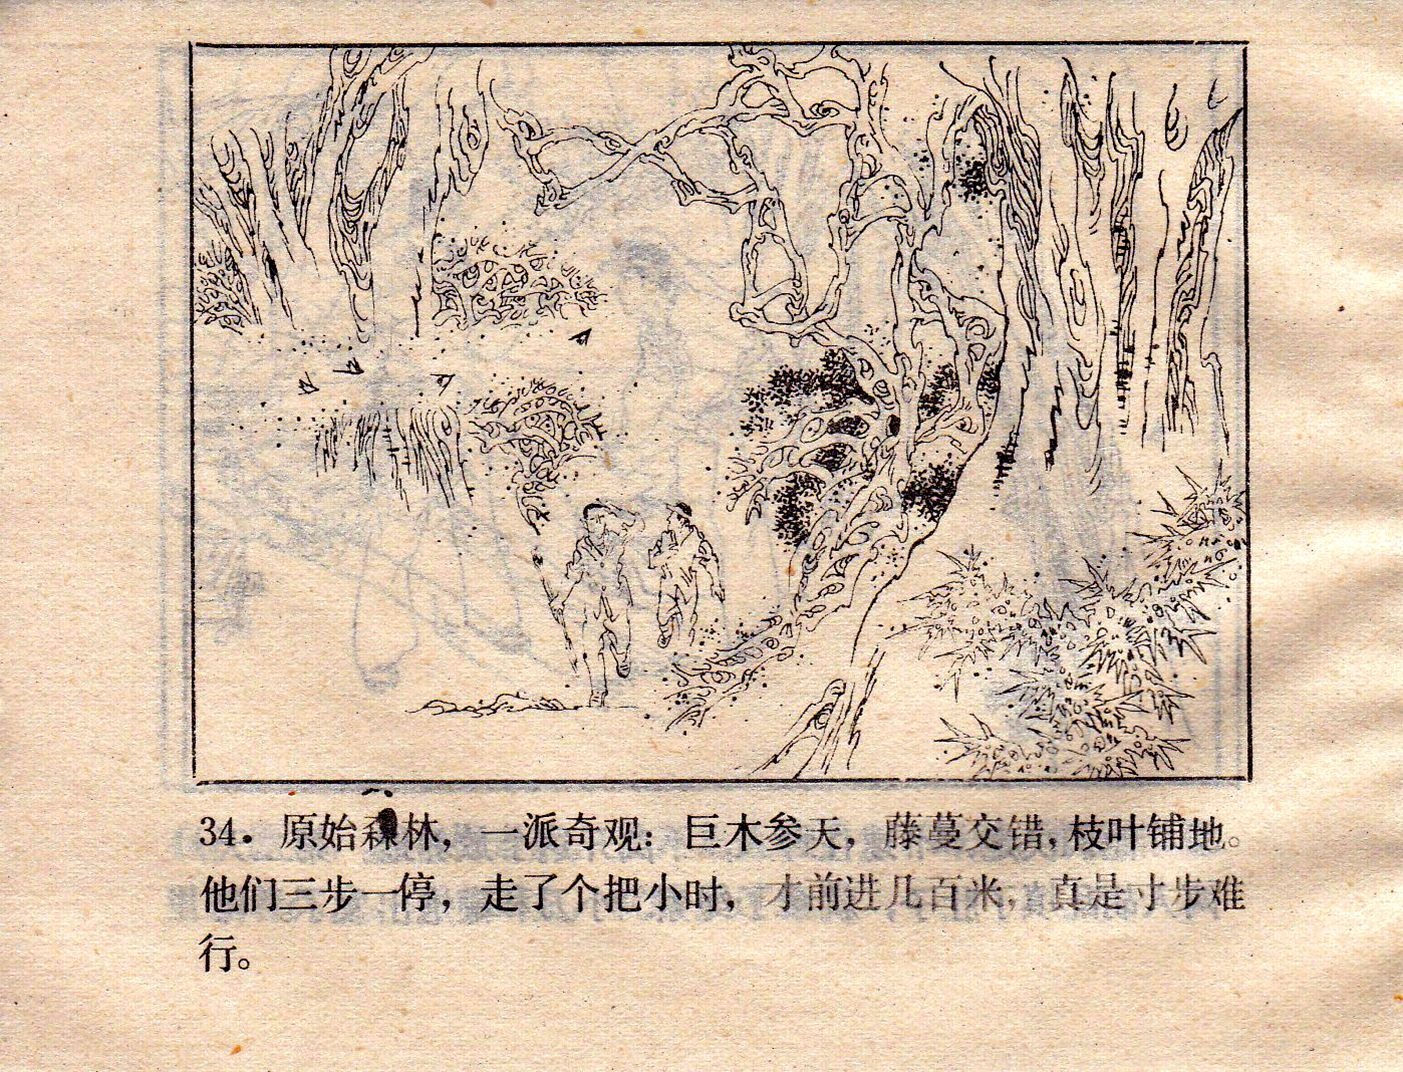 34. 原始森林，一派奇观：巨木参天，藤蔓交错，枝叶铺地。
他们三步一停，走了个把小时，才前进几百米，真是寸步难
行。